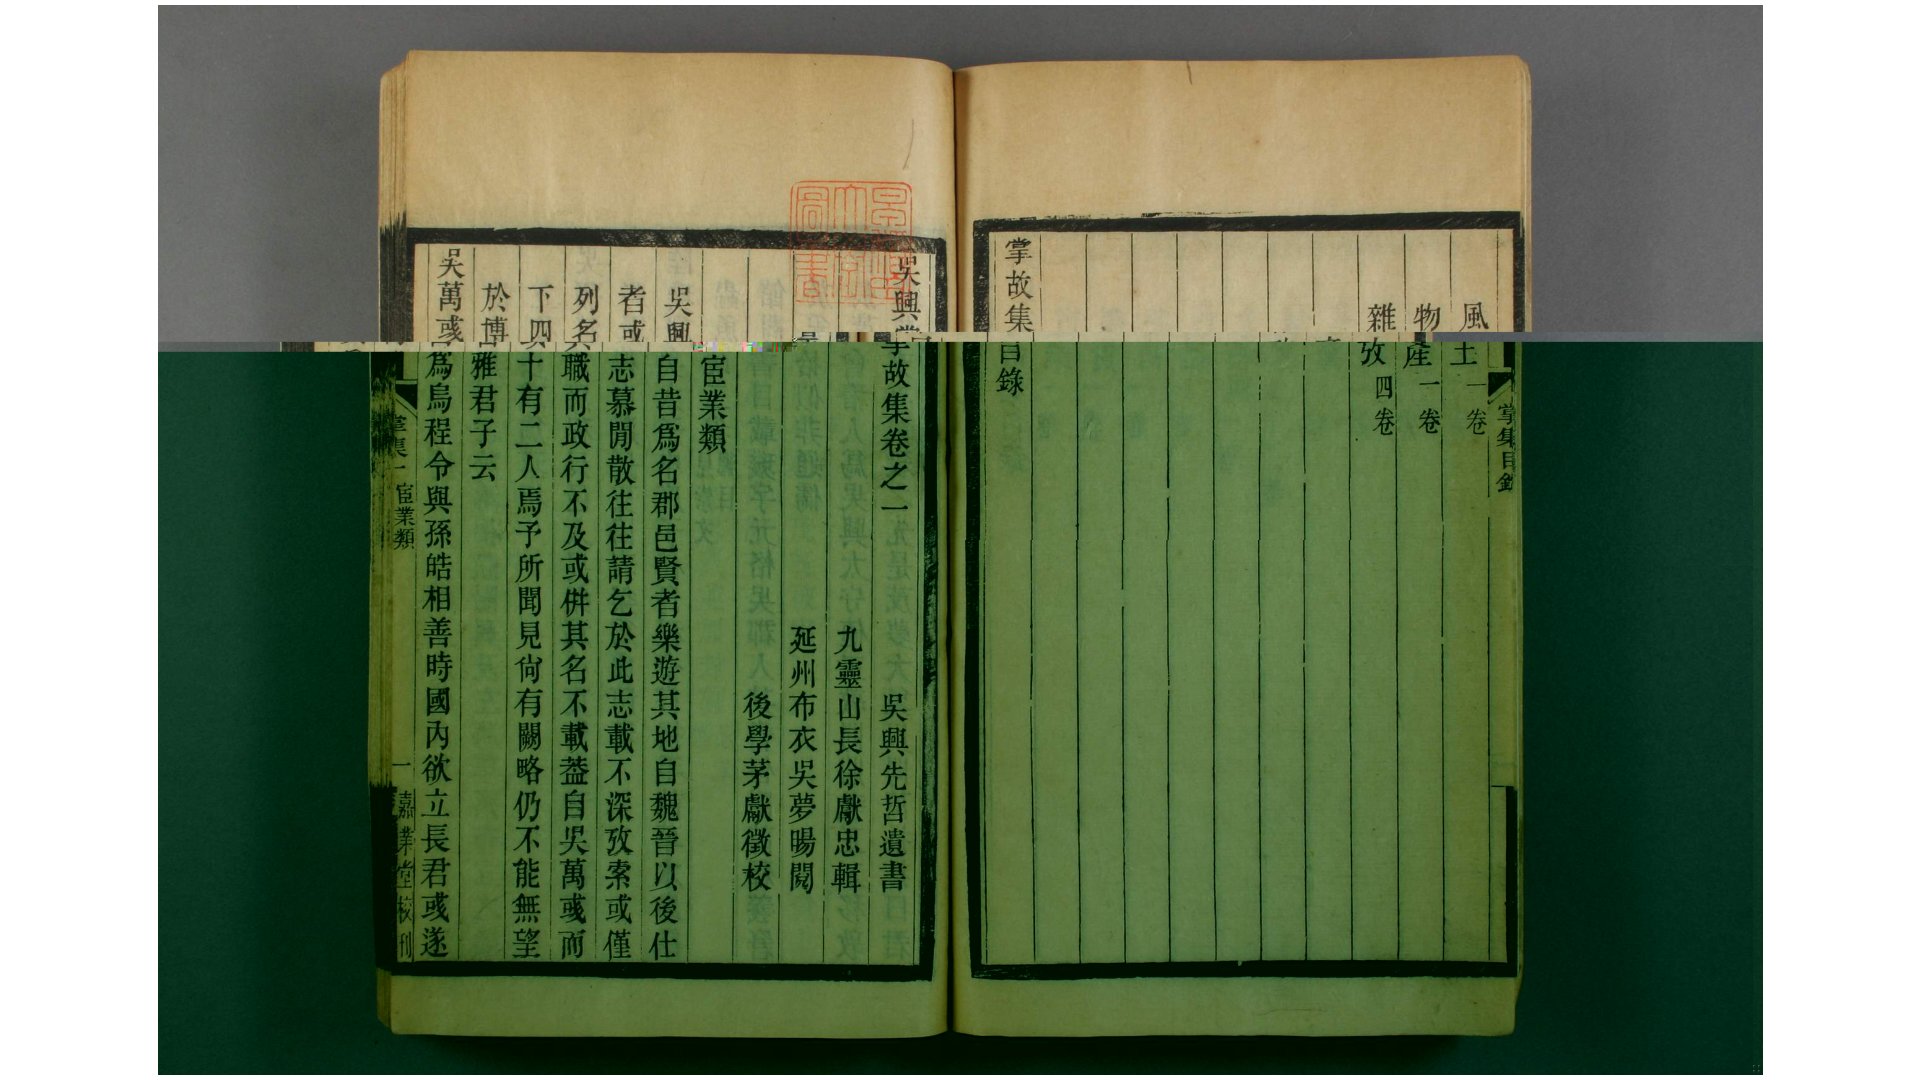 風土一卷
物產一卷
雜攷四卷
掌故集目錄
掌集目錄
吳興掌故集卷之一
吳興先哲遺書
九靈山長徐獻忠輯
延州布衣吳夢暘閱
後學茅獻徵校
宦業類
吳興自昔爲名郡邑賢者樂遊其地自魏晉以後仕
者或志慕閒散往往請乞於此志載不深攷索或僅
列名其職而政行不及或併其名不載葢自吳萬彧而
下四十有二人焉予所聞見尙有闕略仍不能無望
於博雅君子云
吳萬彧爲烏程令與孫皓相善時國內欲立長君彧遂
掌集一 宦業類
一
嘉業堂校刊